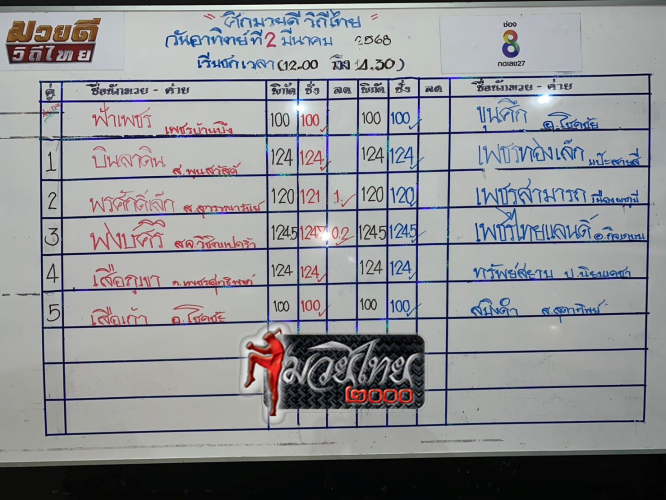 มวยดี
วิถีไทย
"ศึกมวยดี วิถีไทย"
วันอาทิตย์ที่ 2 มีนาคม 2568
เริ่มชกเวลา (12.00 ถึง 14.30)
ช่อง
8
กดเลข27
คู่ ชื่อนักมวย - ค่าย พิกัด ชั่ง ลด พิกัด ชั่ง ลด ชื่อนักมวย - ค่าย
ฟ้าเพชร เพชรบ้านบึง 100 100 100 100 ขุนศึก อ.โชคชัย
1 บินลาดิน ส.พูนสวัสดิ์ 124 124 124 124 เพชรทองเล็ก
2 พรศักดิ์เล็ก 120 121 1 120 120 เพชรสามารถ
3 124.5 0.2 124.5 124.5 เพชรไทยแลนด์
4 เสือภูเขา 124 124 124 124 ทรัพย์สยาม
5 เสือเก้า อ.โชคชัย 100 100 100 100 สมิงดำ
มวยไทย
๒๐๐๐